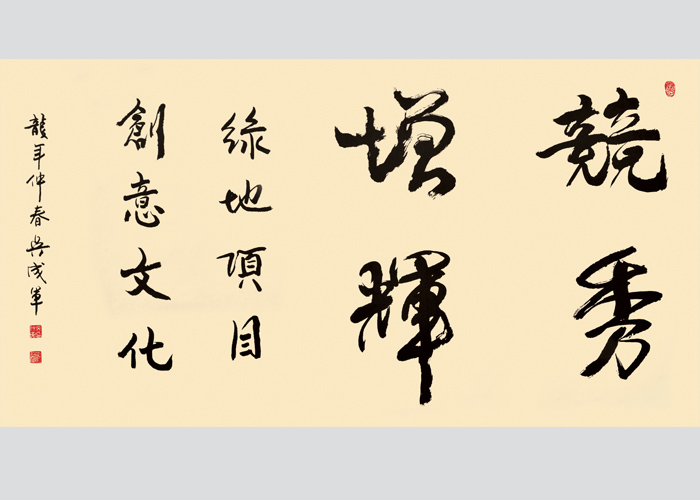 競秀
增輝
綠地項目
創意文化
龍年仲春吳成軍